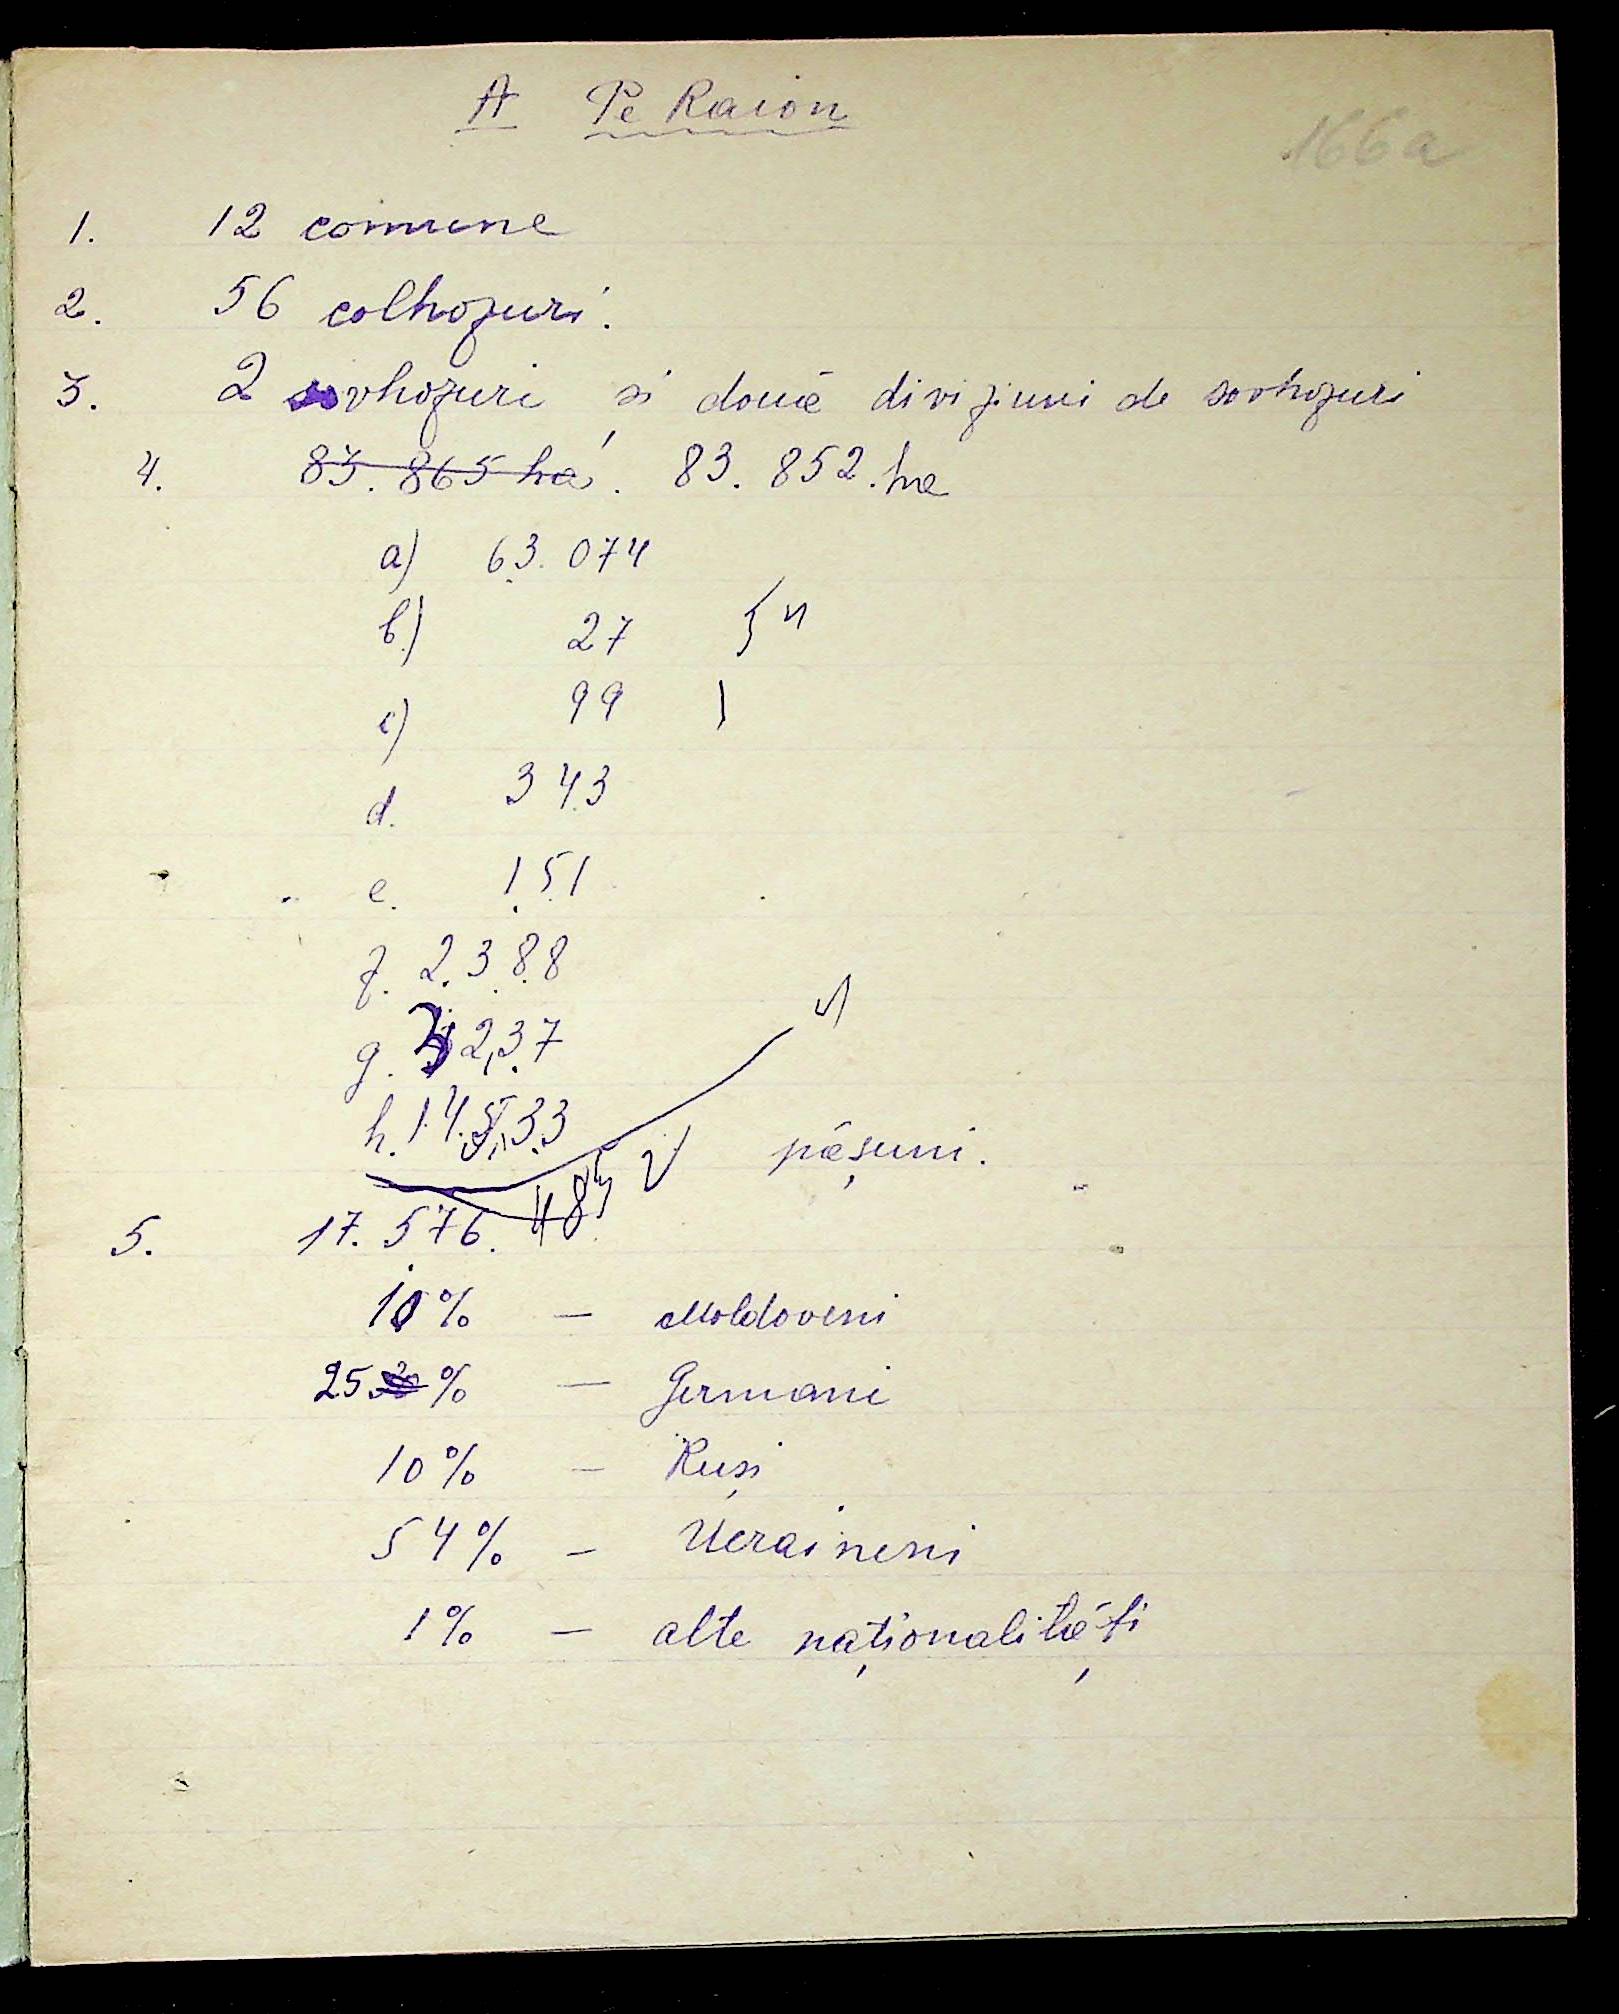 A Pe Raion
166a
1. 12 comune
2. 56 colhozuri.
3. 2 sovhozuri și două diviziuni de sovhozuri
4. 83.865 ha. 83.852 ha
a) 63.074
b) 27
c) 99
d. 343
e. 151
f. 2.388
g. 3237
h. 14.533
485 pășuni.
5. 17.576.
10% — Moldoveni
25% — Germani
10% — Ruși
54% — Ucraineni
1% — alte naționalități